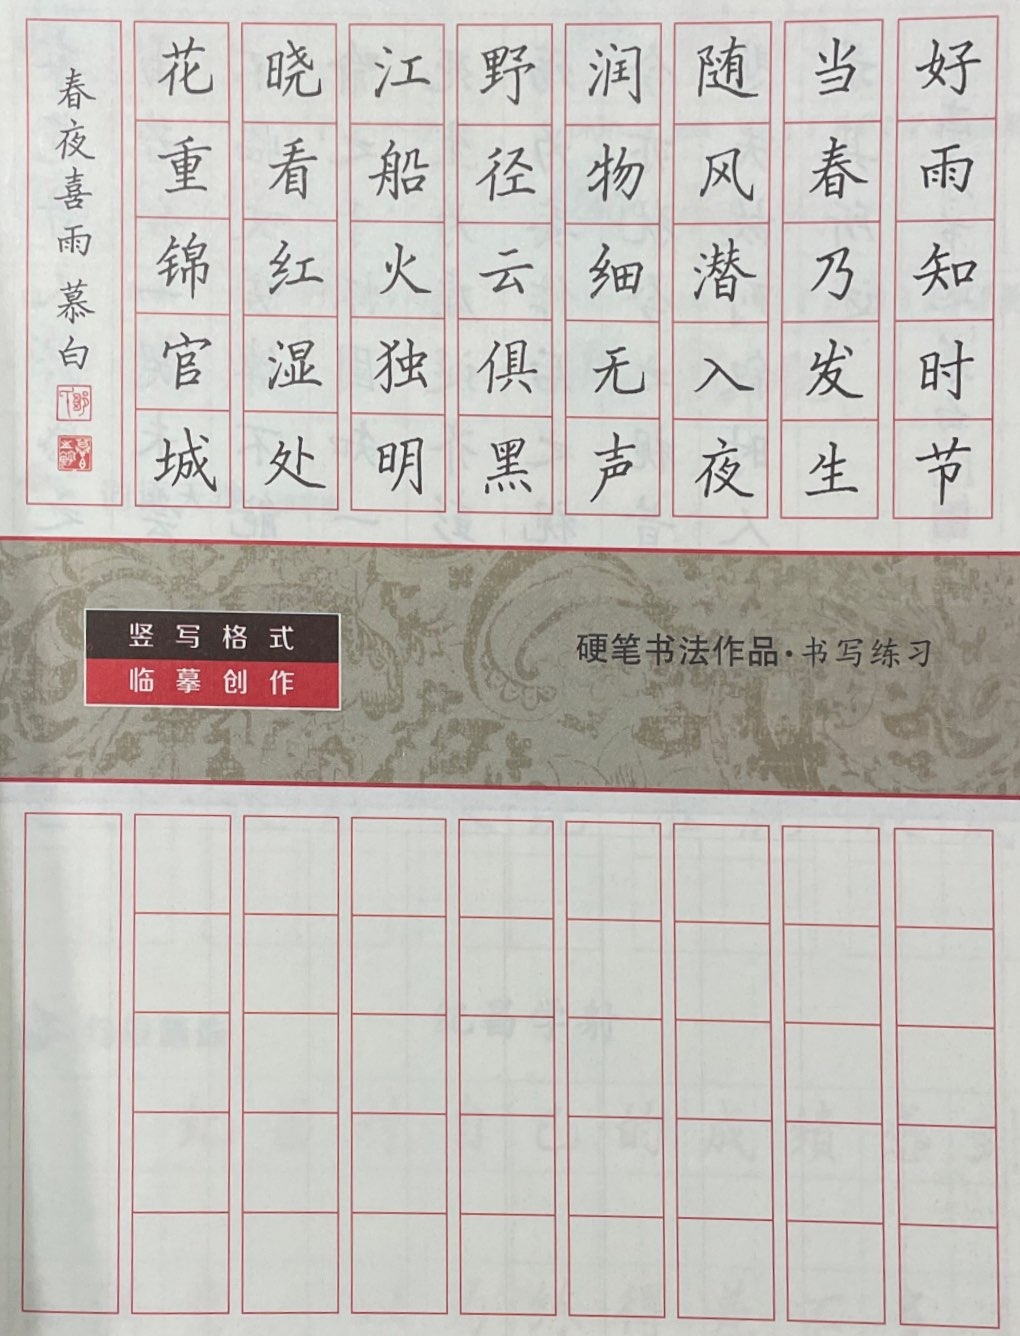 好雨知时节
当春乃发生
随风潜入夜
润物细无声
野径云俱黑
江船火独明
晓看红湿处
花重锦官城
春夜喜雨 慕白
竖写格式
临摹创作
硬笔书法作品·书写练习